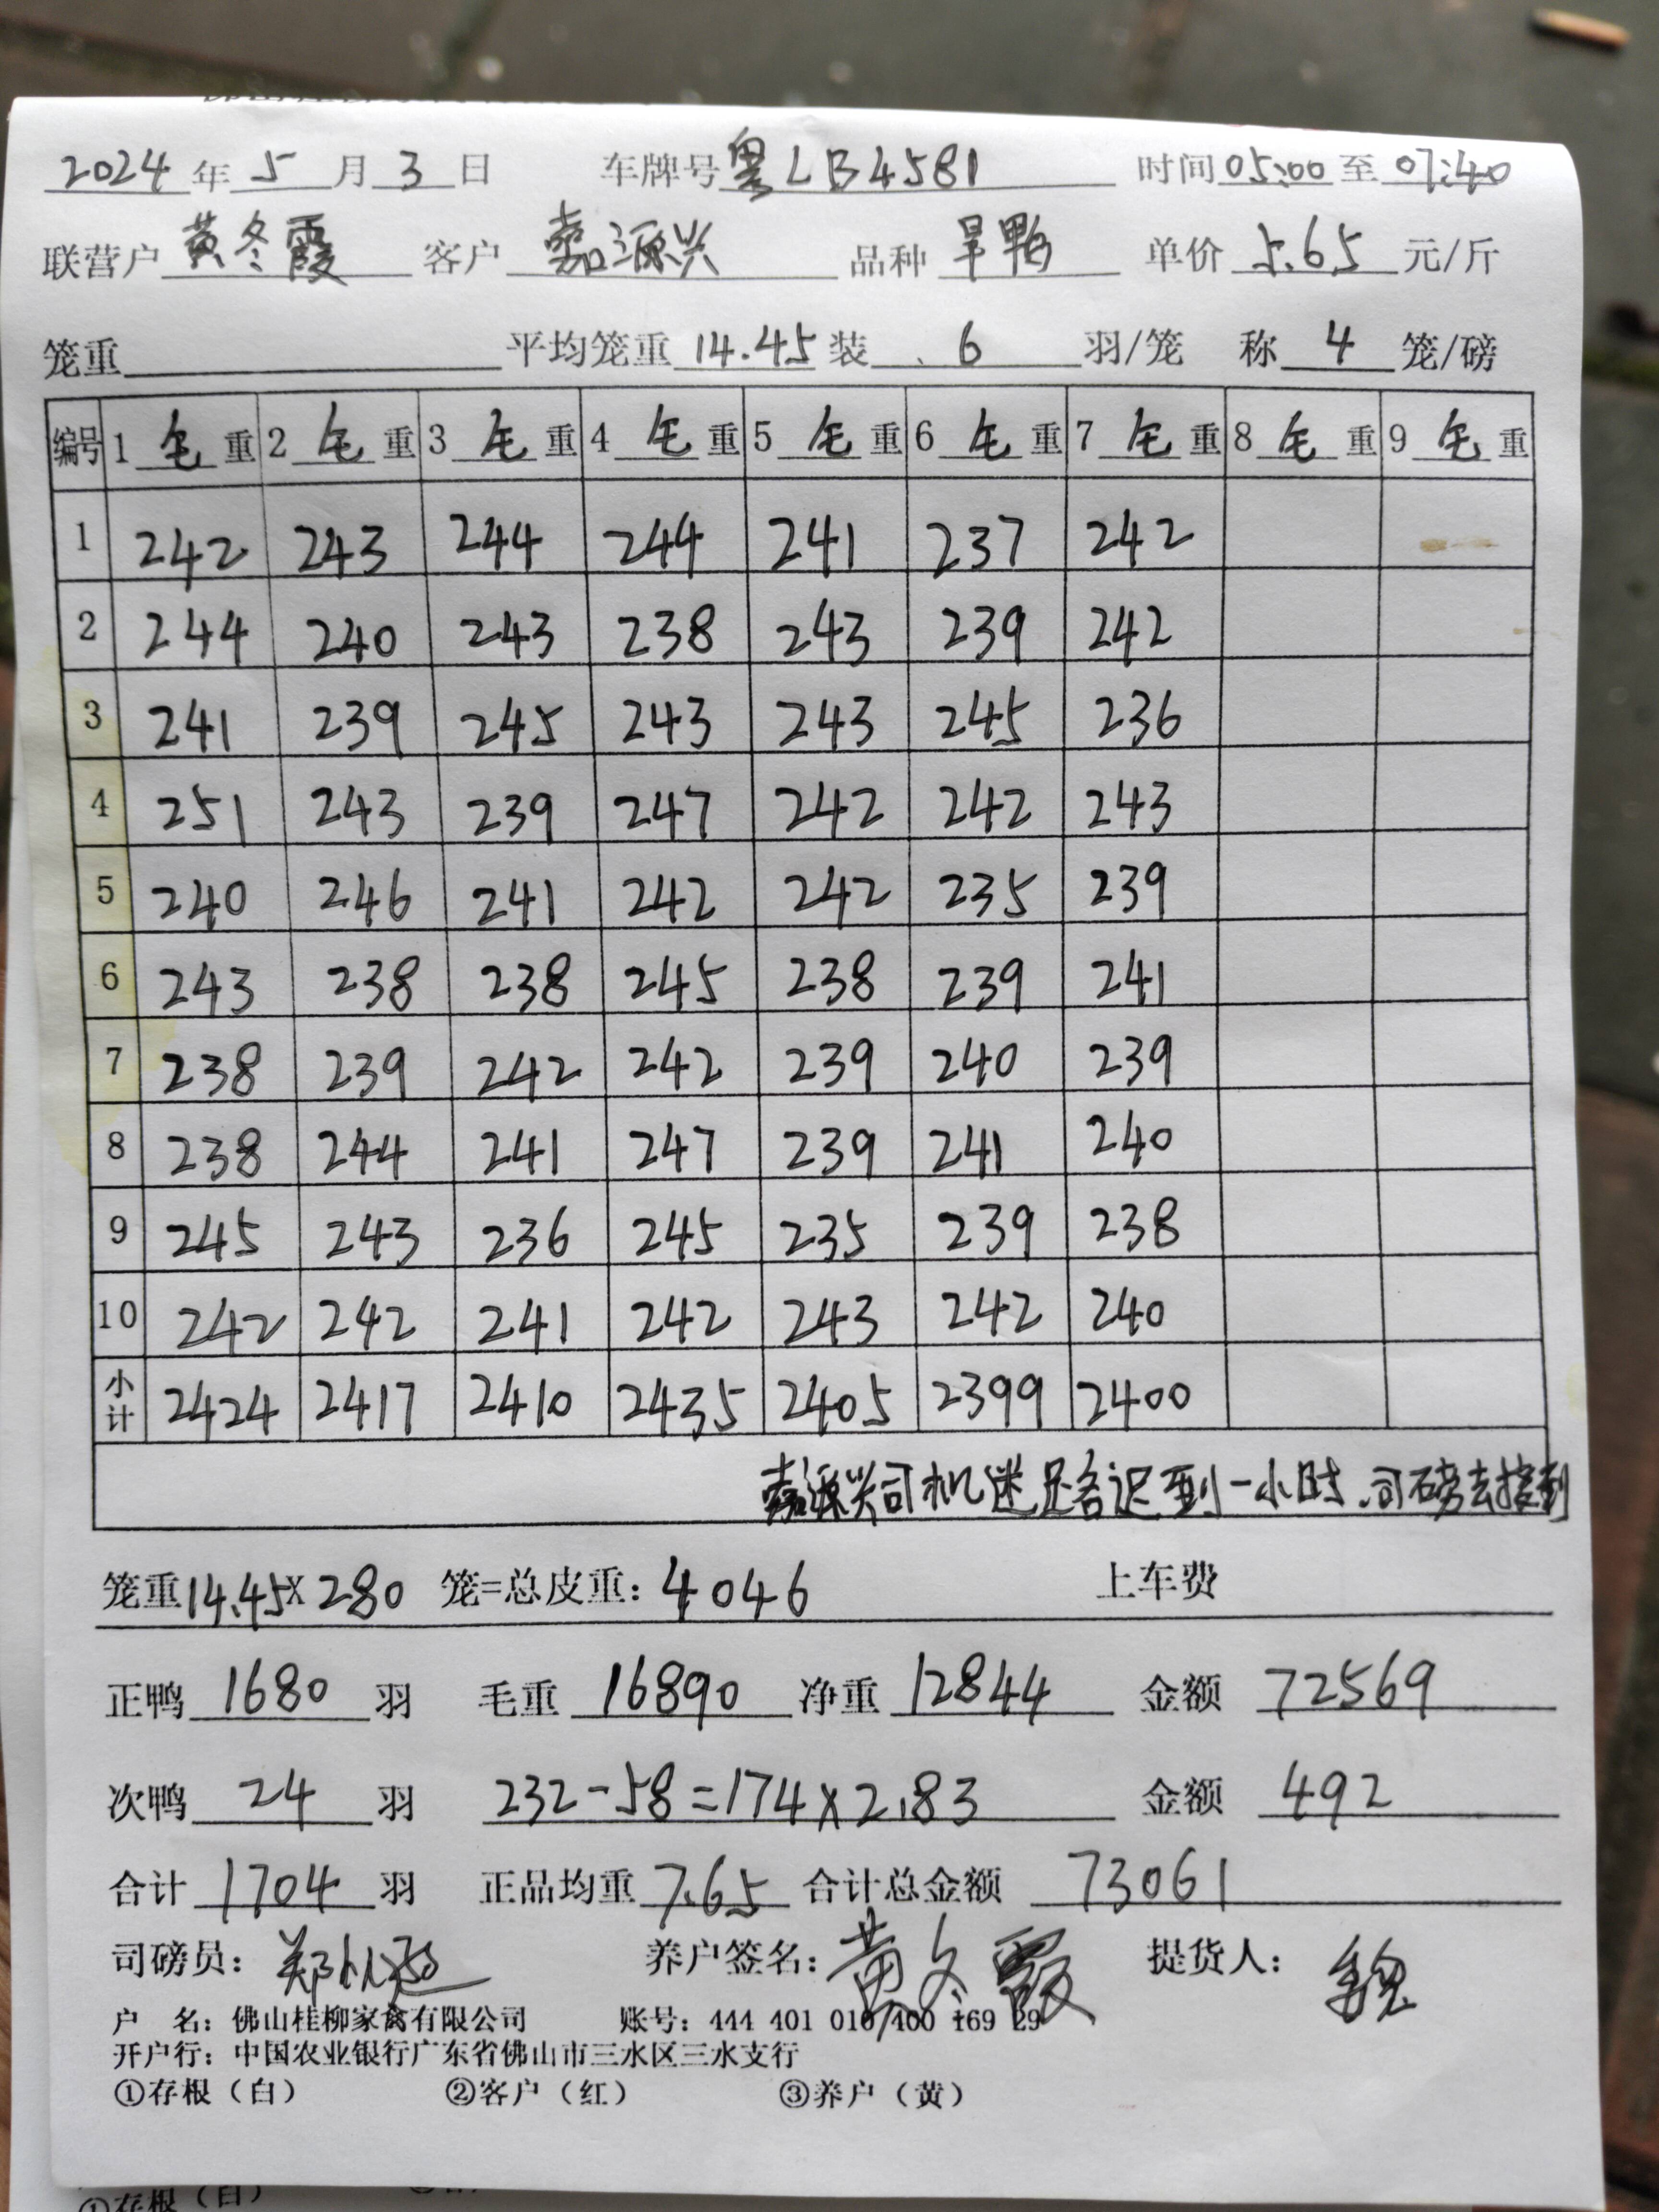 2024 年 5 月 3 日 车牌号 粤LB4581 时间 05:00 至 07:40
联营户 黄冬霞 客户 嘉源兴 品种 旱鸭 单价 5.65 元/斤
笼重 平均笼重 14.45 装 6 羽/笼 称 4 笼/磅
编号 1 毛 重 2 毛 重 3 毛 重 4 毛 重 5 毛 重 6 毛 重 7 毛 重 8 毛 重 9 毛 重
1 242 243 244 244 241 237 242
2 244 240 243 238 243 239 242
3 241 239 245 243 243 245 236
4 251 243 239 247 242 242 243
5 240 246 241 242 242 235 239
6 243 238 238 245 238 239 241
7 238 239 242 242 239 240 239
8 238 244 241 247 239 241 240
9 245 243 236 245 235 239 238
10 242 242 241 242 243 242 240
小计 2424 2417 2410 2435 2405 2399 2400
嘉源兴司机迷足各迟到一小时.司磅去接到
笼重 14.45 X 280 笼=总皮重: 4046 上车费
正鸭 1680 羽 毛重 16890 净重 12844 金额 72569
次鸭 24 羽 232-58=174×2.83 金额 492
合计 1704 羽 正品均重 7.65 合计总金额 73061
司磅员: 郑 养户签名: 黄冬霞 提货人: 魏
户 名: 佛山桂柳家禽有限公司 账号: 444 401 010 400 169 29
开户行: 中国农业银行广东省佛山市三水区三水支行
①存根（白） ②客户（红） ③养户（黄）
①存根（白）